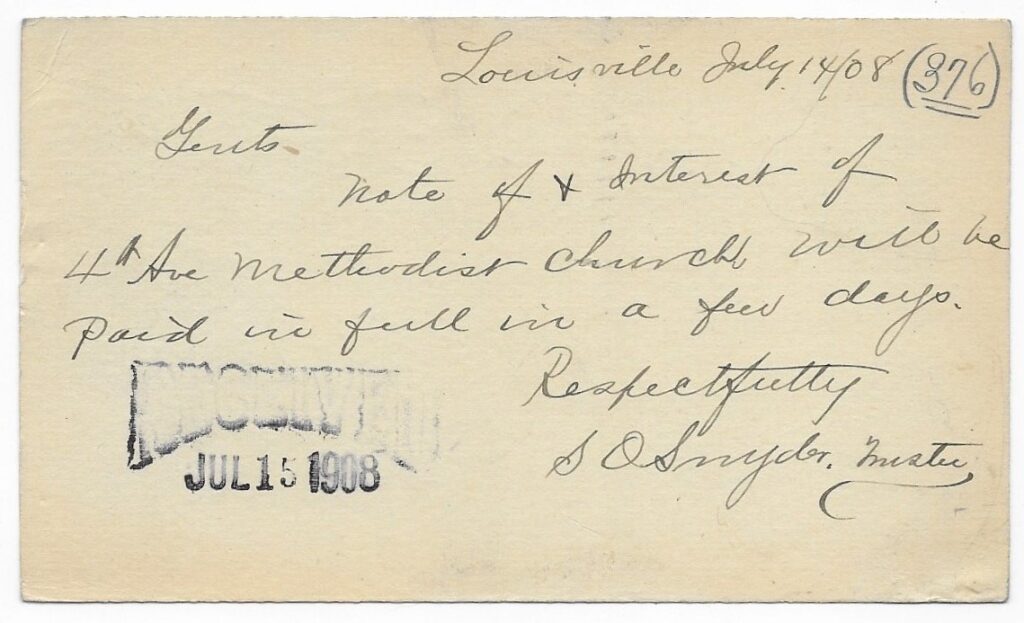 Louisville July 14/08 (376)
Gents
Note of & Interest of
4th Ave Methodist Church will be
paid in full in a few days.
Respectfully
S O Snyder, Trustee
RECEIVED
JUL 15 1908